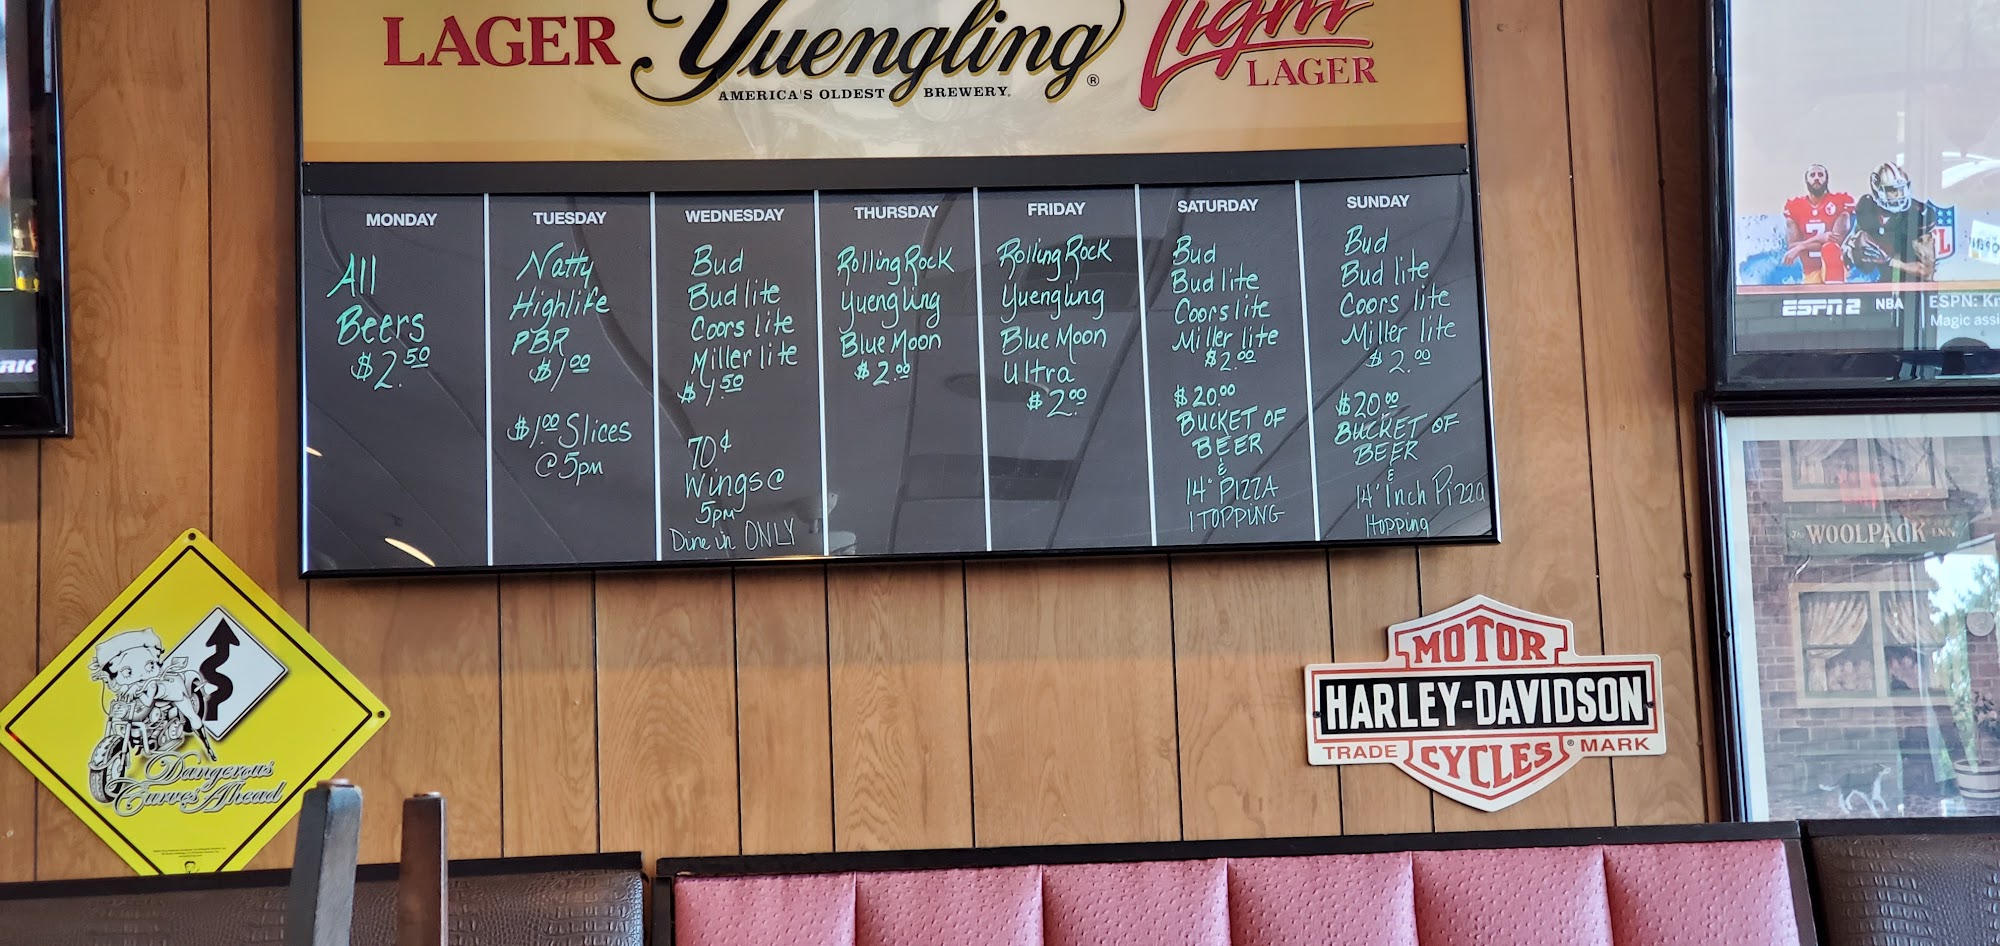 LAGER Yuengling® Light LAGER
AMERICA'S OLDEST BREWERY.
MONDAY
All
Beers
$2.50
TUESDAY
Natty
Highlife
PBR
$1.00
$1.00 Slices
@ 5pm
WEDNESDAY
Bud
Bud lite
Coors lite
Miller lite
$1.50
70¢
Wings @
5pm
Dine in ONLY
THURSDAY
Rolling Rock
Yuengling
Blue Moon
$2.00
FRIDAY
Rolling Rock
Yuengling
Blue Moon
Ultra
$2.00
SATURDAY
Bud
Bud lite
Coors lite
Miller lite
$2.00
$20.00
BUCKET OF
BEER
&
14" PIZZA
1 TOPPING
SUNDAY
Bud
Bud lite
Coors lite
Miller lite
$2.00
$20.00
BUCKET OF
BEER
&
14" Inch Pizza
1 topping
7
ESPN2 NBA ESPN:
Magic
The WOOLPACK INN
Dangerous
Curves Ahead
MOTOR
HARLEY-DAVIDSON
TRADE CYCLES® MARK